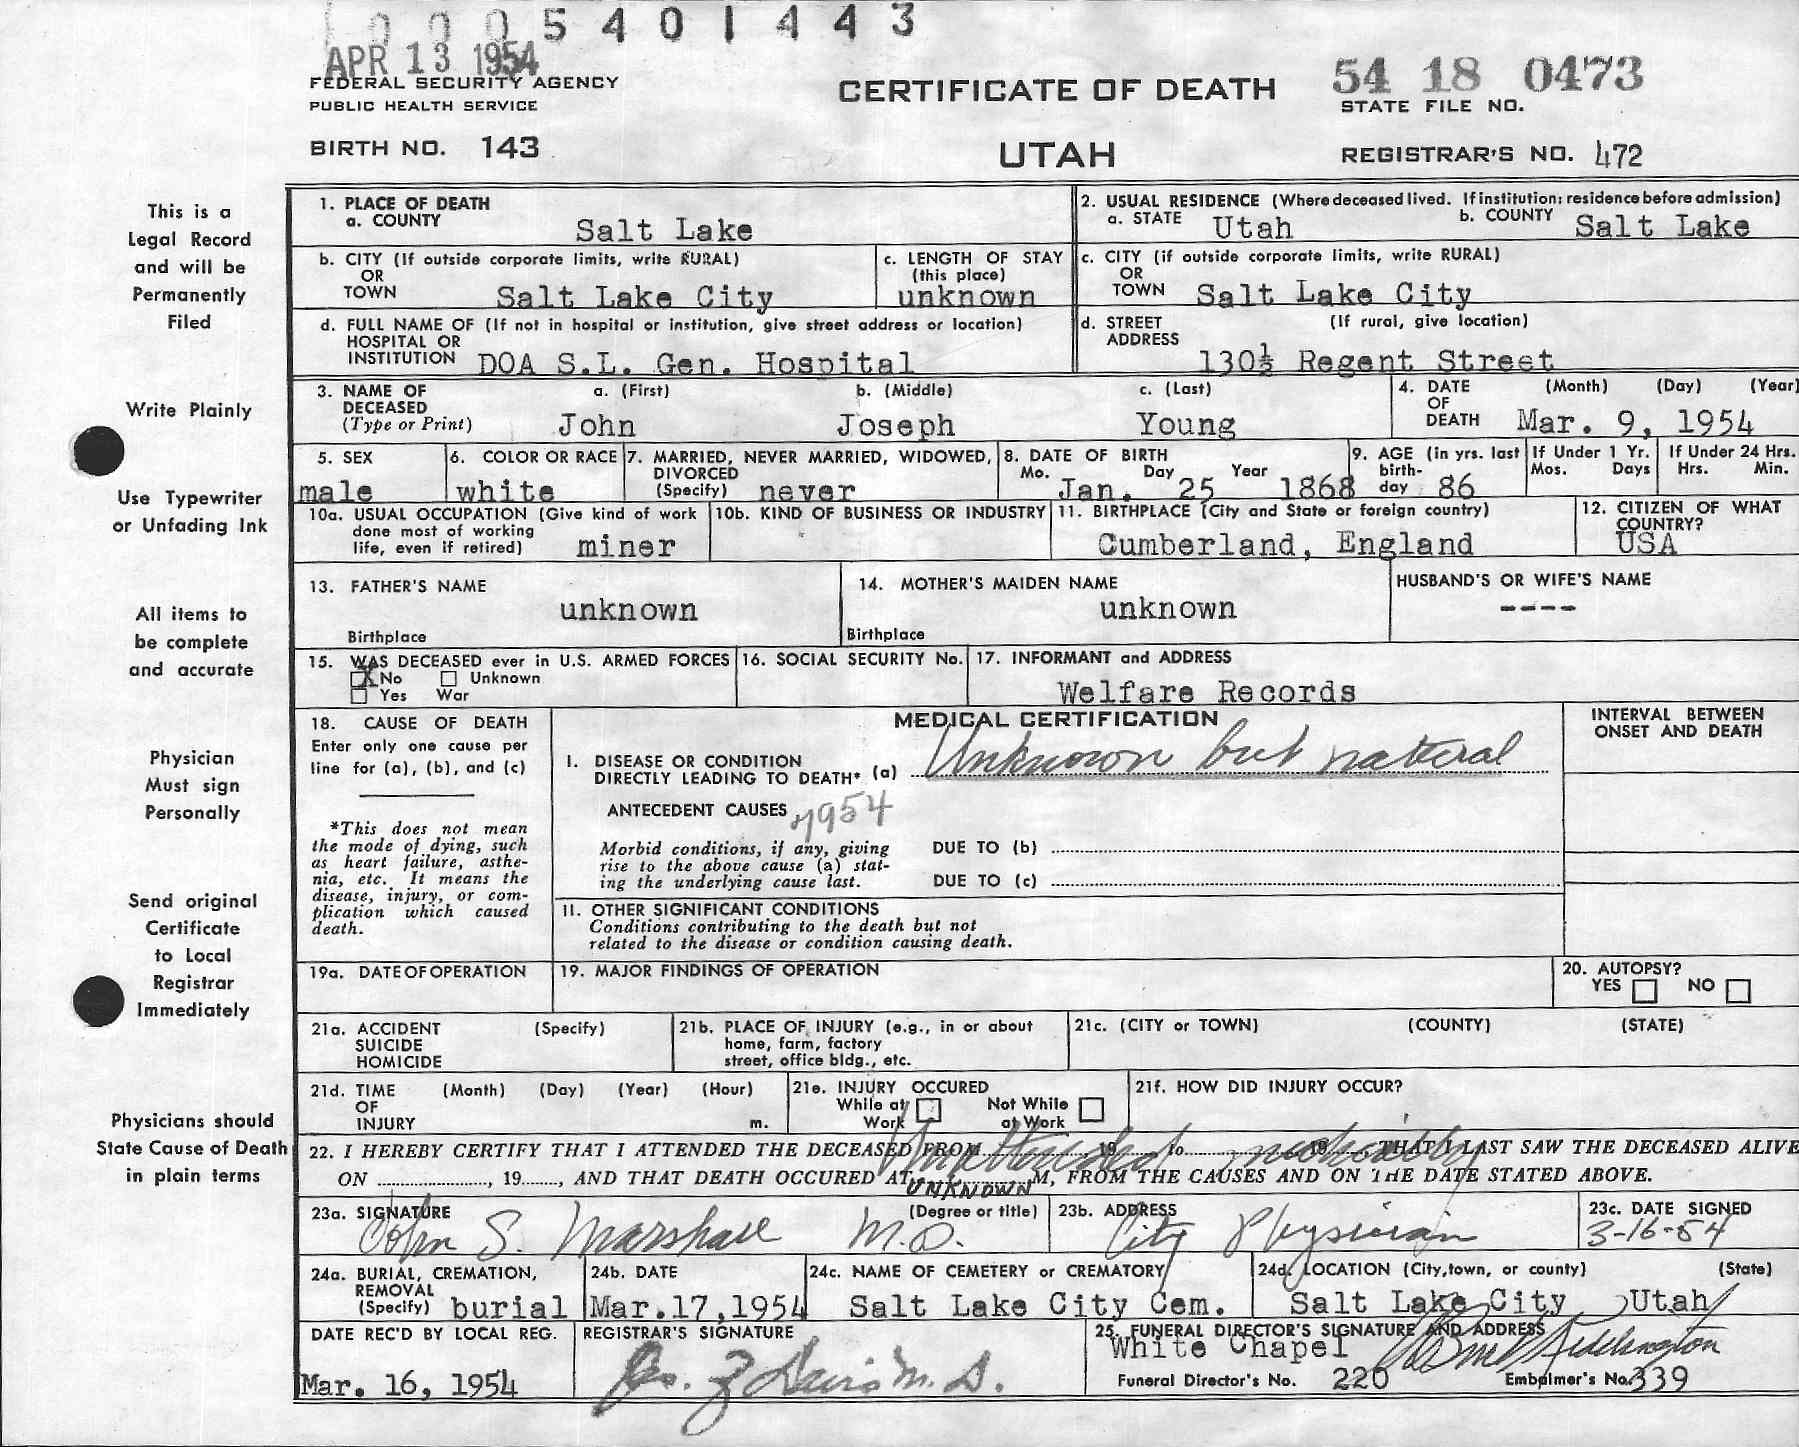 0005401443
APR 13 1954
FEDERAL SECURITY AGENCY
PUBLIC HEALTH SERVICE
BIRTH NO. 143
CERTIFICATE OF DEATH
UTAH
54 18 0473
STATE FILE NO.
REGISTRAR'S NO. 472
This is a
Legal Record
and will be
Permanently
Filed
Write Plainly
Use Typewriter
or Unfading Ink
All items to
be complete
and accurate
Physician
Must sign
Personally
Send original
Certificate
to Local
Registrar
Immediately
Physicians should
State Cause of Death
in plain terms
1. PLACE OF DEATH
a. COUNTY Salt Lake
2. USUAL RESIDENCE (Where deceased lived. If institution: residence before admission)
a. STATE Utah b. COUNTY Salt Lake
b. CITY (If outside corporate limits, write RURAL)
OR
TOWN Salt Lake City
c. LENGTH OF STAY
(this place)
unknown
c. CITY (if outside corporate limits, write RURAL)
OR
TOWN Salt Lake City
d. FULL NAME OF (If not in hospital or institution, give street address or location)
HOSPITAL OR
INSTITUTION DOA S.L. Gen. Hospital
d. STREET (If rural, give location)
ADDRESS
130½ Regent Street
3. NAME OF DECEASED
(Type or Print)
a. (First) b. (Middle) c. (Last)
John Joseph Young
4. DATE OF DEATH (Month) (Day) (Year)
Mar. 9, 1954
5. SEX
male
6. COLOR OR RACE
white
7. MARRIED, NEVER MARRIED, WIDOWED,
DIVORCED
(Specify) never
8. DATE OF BIRTH
Mo. Day Year
Jan. 25 1868
9. AGE (in yrs. last
birth-
day 86
If Under 1 Yr.
Mos. Days
If Under 24 Hrs.
Hrs. Min.
10a. USUAL OCCUPATION (Give kind of work
done most of working
life, even if retired) miner
10b. KIND OF BUSINESS OR INDUSTRY
11. BIRTHPLACE (City and State or foreign country)
Cumberland, England
12. CITIZEN OF WHAT
COUNTRY?
USA
13. FATHER'S NAME
unknown
Birthplace
14. MOTHER'S MAIDEN NAME
unknown
Birthplace
HUSBAND'S OR WIFE'S NAME
----
15. WAS DECEASED ever in U.S. ARMED FORCES
X No Unknown
Yes War
16. SOCIAL SECURITY No.
17. INFORMANT and ADDRESS
Welfare Records
18. CAUSE OF DEATH
Enter only one cause per
line for (a), (b), and (c)
*This does not mean
the mode of dying, such
as heart failure, asthe-
nia, etc. It means the
disease, injury, or com-
plication which caused
death.
MEDICAL CERTIFICATION
I. DISEASE OR CONDITION
DIRECTLY LEADING TO DEATH* (a) Unknown but natural
ANTECEDENT CAUSES
7954
Morbid conditions, if any, giving
rise to the above cause (a) stat-
ing the underlying cause last.
DUE TO (b)
DUE TO (c)
II. OTHER SIGNIFICANT CONDITIONS
Conditions contributing to the death but not
related to the disease or condition causing death.
INTERVAL BETWEEN
ONSET AND DEATH
19a. DATE OF OPERATION
19. MAJOR FINDINGS OF OPERATION
20. AUTOPSY?
YES NO
21a. ACCIDENT (Specify)
SUICIDE
HOMICIDE
21b. PLACE OF INJURY (e.g., in or about
home, farm, factory
street, office bldg., etc.
21c. (CITY or TOWN) (COUNTY) (STATE)
21d. TIME (Month) (Day) (Year) (Hour)
OF
INJURY m.
21e. INJURY OCCURED
While at Work Not While at Work
21f. HOW DID INJURY OCCUR?
22. I HEREBY CERTIFY THAT I ATTENDED THE DECEASED FROM , 19 to , 19 , THAT I LAST SAW THE DECEASED ALIVE
Unattended medically
ON , 19 , AND THAT DEATH OCCURED AT UNKNOWN M, FROM THE CAUSES AND ON THE DATE STATED ABOVE.
23a. SIGNATURE (Degree or title)
John S. Marshall M.D.
23b. ADDRESS
City Physician
23c. DATE SIGNED
3-16-54
24a. BURIAL, CREMATION,
REMOVAL
(Specify) burial
24b. DATE
Mar.17,1954
24c. NAME OF CEMETERY or CREMATORY
Salt Lake City Cem.
24d. LOCATION (City, town, or county) (State)
Salt Lake City Utah
DATE REC'D BY LOCAL REG.
Mar. 16, 1954
REGISTRAR'S SIGNATURE
Davis M.D.
25. FUNERAL DIRECTOR'S SIGNATURE AND ADDRESS
White Chapel
Funeral Director's No. 220
Embalmer's No. 339